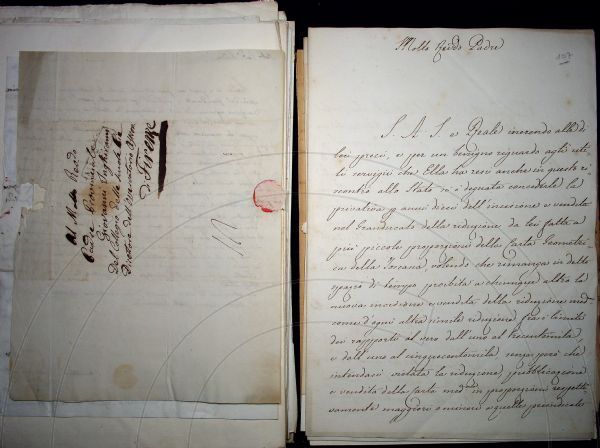 Al M.to Rendo
Padre Giovanni
Giovanni Inghirami
Del Collegio delle Scuole Pie
Direttore dell'Osservatorio Ximen
di Firenze
107
Molto Revdo Padre
S. A. I. e Reale inerendo alle di
lei preci, e per un benigno riguardo agli uti-
li servigii che Ella ha resi anche in questo in-
contro allo Stato si è degnata concederle la
privativa p. anni dieci dell'incisione e vendita
nel Granducato della riduzione da lei fatta a
più piccole proporzioni della Carta Geometri-
ca della Toscana, volendo che rimanga in detto
spazio di tempo proibita a chiunque altro la
nuova incisione e vendita della riduzione med.
come d'ogni altra simile riduzione fra i limiti
dei rapporti al vero dall'uno al trecentomila,
e dall'uno al cinquecentomila senza però che
intendasi vietata la riduzione, pubblicazione
e vendita della Carta med. in proporzioni respetti-
vamente maggiori o minori a quelle preindicate